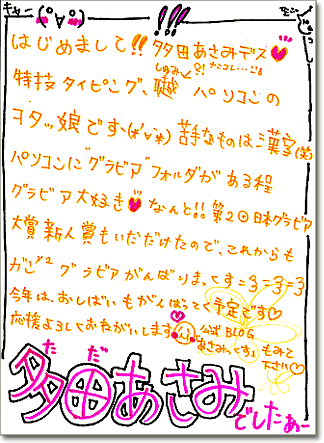 キャー
はじめまして!! 多田あさみデス♥
特技タイピング、 パソコンの
ヲタッ娘です、(*'∀'*) 苦手なものは漢字(笑)
パソコンに"グラビア"フォルダがある程
グラビア大好き♥ なんと!! 第20回日本グラビア
大賞新人賞もいただけたので、これからも
グラビアがんばりまっくす=3=3=3
今年は、おしばいもがんばってく予定です♡
応援よろしくおねがいします
公式BLOG
"あさみっくす"もみて
下さい♡
ただ
多田あさみ
でしたぁー